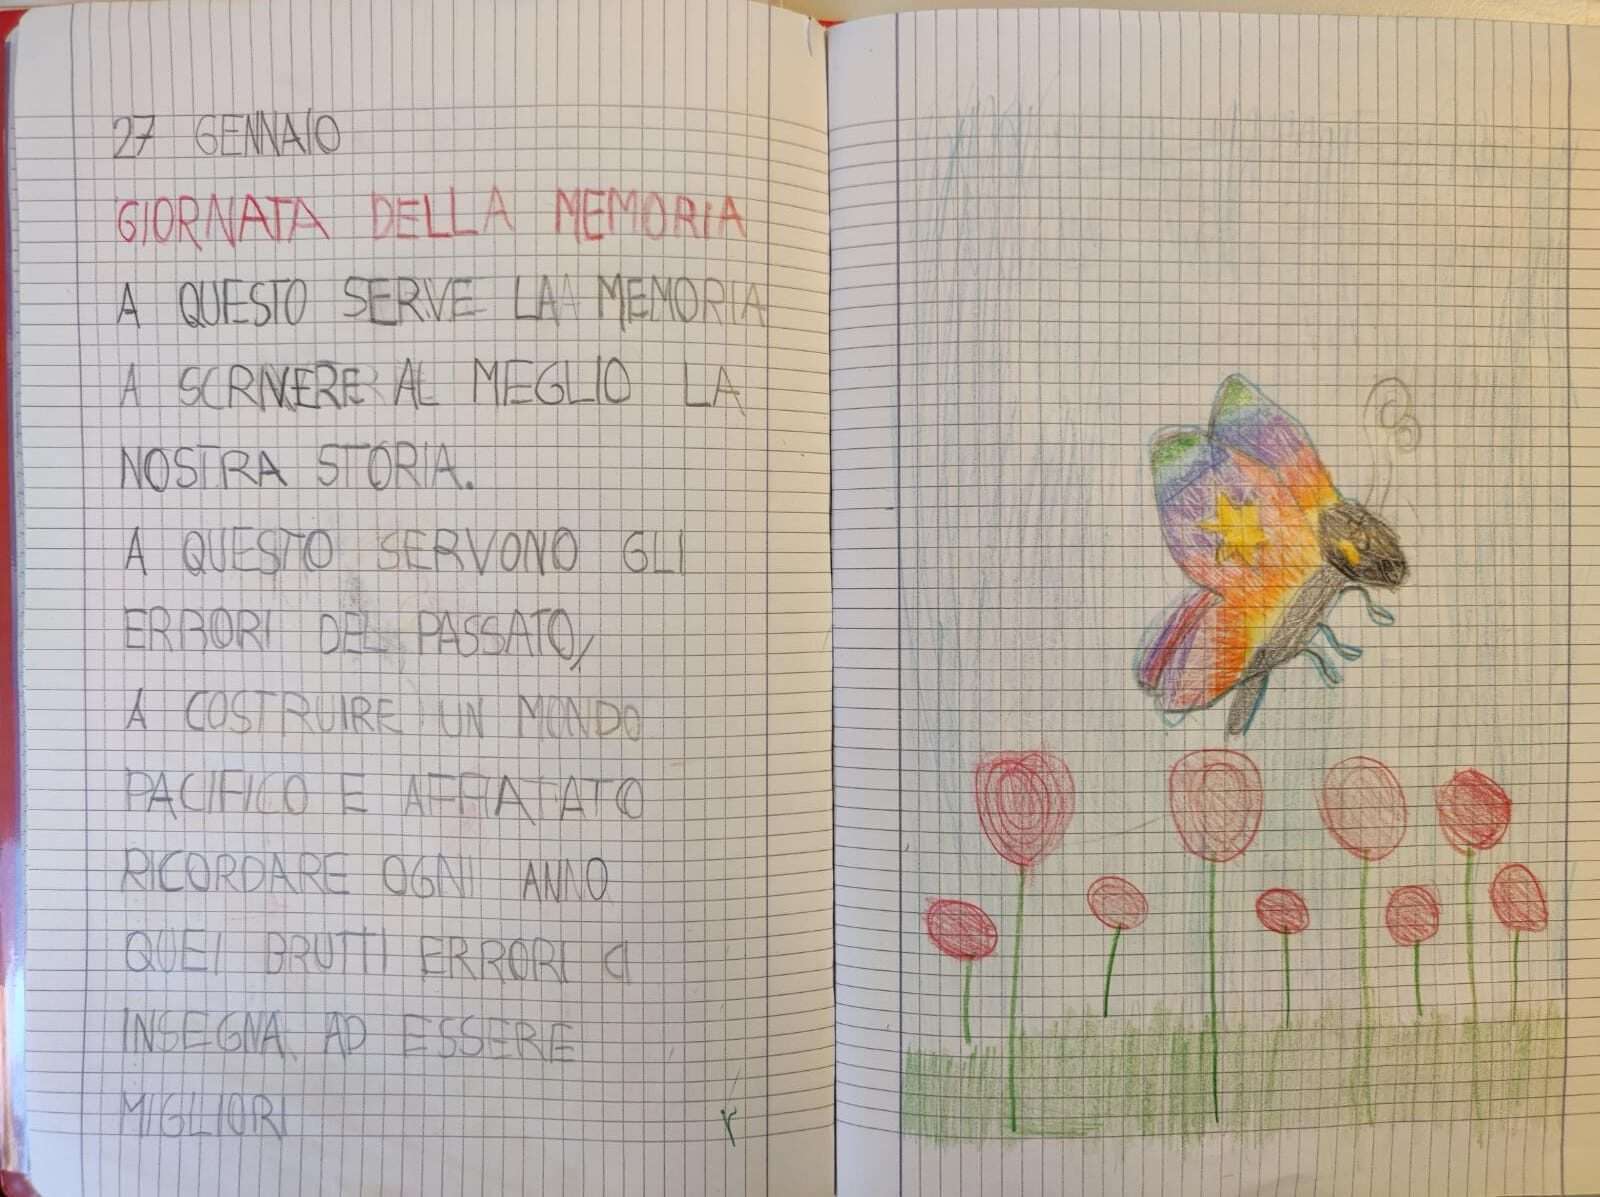 27 GENNAIO
GIORNATA DELLA MEMORIA
A QUESTO SERVE LA MEMORIA
A SCRIVERE AL MEGLIO LA
NOSTRA STORIA.
A QUESTO SERVONO GLI
ERRORI DEL PASSATO,
A COSTRUIRE UN MONDO
PACIFICO E AFFIATATO
RICORDARE OGNI ANNO
QUEI BRUTTI ERRORI CI
INSEGNA AD ESSERE
MIGLIORI